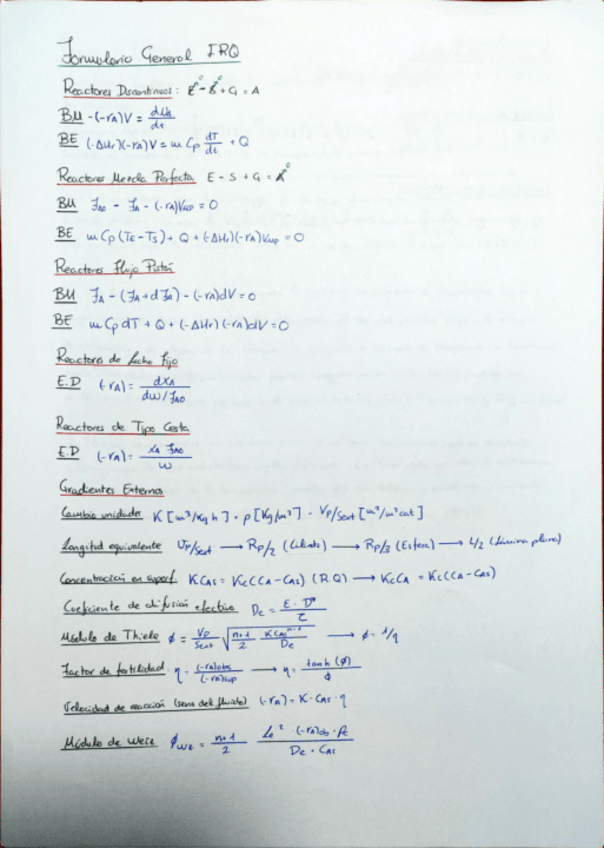 Formulario General IRQ
Reactores Discontinuos: E⁰ - S⁰ + G = A
BM -(-rA)V = dNA/dt
BE (-ΔHr)(-rA)V = m Cp dT/dt + Q
Reactores Mezcla Perfecta E - S + G = A⁰
BM FA0 - FA - (-rA)VMP = 0
BE m Cp (TE - TS) + Q + (-ΔHr)(-rA)VMP = 0
Reactores Flujo Pistón
BM FA - (FA + dFA) - (-rA)dV = 0
BE m Cp dT + Q + (-ΔHr)(-rA)dV = 0
Reactores de Lecho Fijo
E.D (-rA) = dXA / dW/FA0
Reactores de Tipo Cesta
E.D (-rA) = XA FA0 / W
Gradientes Externos
Cambio unidades K [m³/Kg h] · ρ [Kg/m³] · VP/Sext [m³/m² cat]
Longitud equivalente VP/Sext → RP/2 (Cilindro) → RP/3 (Esfera) → L/2 (Lámina plana)
Concentración en superf. KCAS = KC(CA - CAS) (R.Q) → KCCA = KC(CA - CAS)
Coeficiente de difusión efectivo De = E · D* / τ
Módulo de Thiele ϕ = VP/Sext √(n+1/2 KCASⁿ⁻¹/De) → ϕ = 1/η
Factor de fertilidad. η = (-rA)obs/(-rA)sup → η = tanh(ϕ)/ϕ
Velocidad de reacción (seno del fluido) (-rA) = K · CAS · η
Módulo de Weisz ϕWZ = n+1/2 Le² · (-rA)ob · ρc / De · CAS